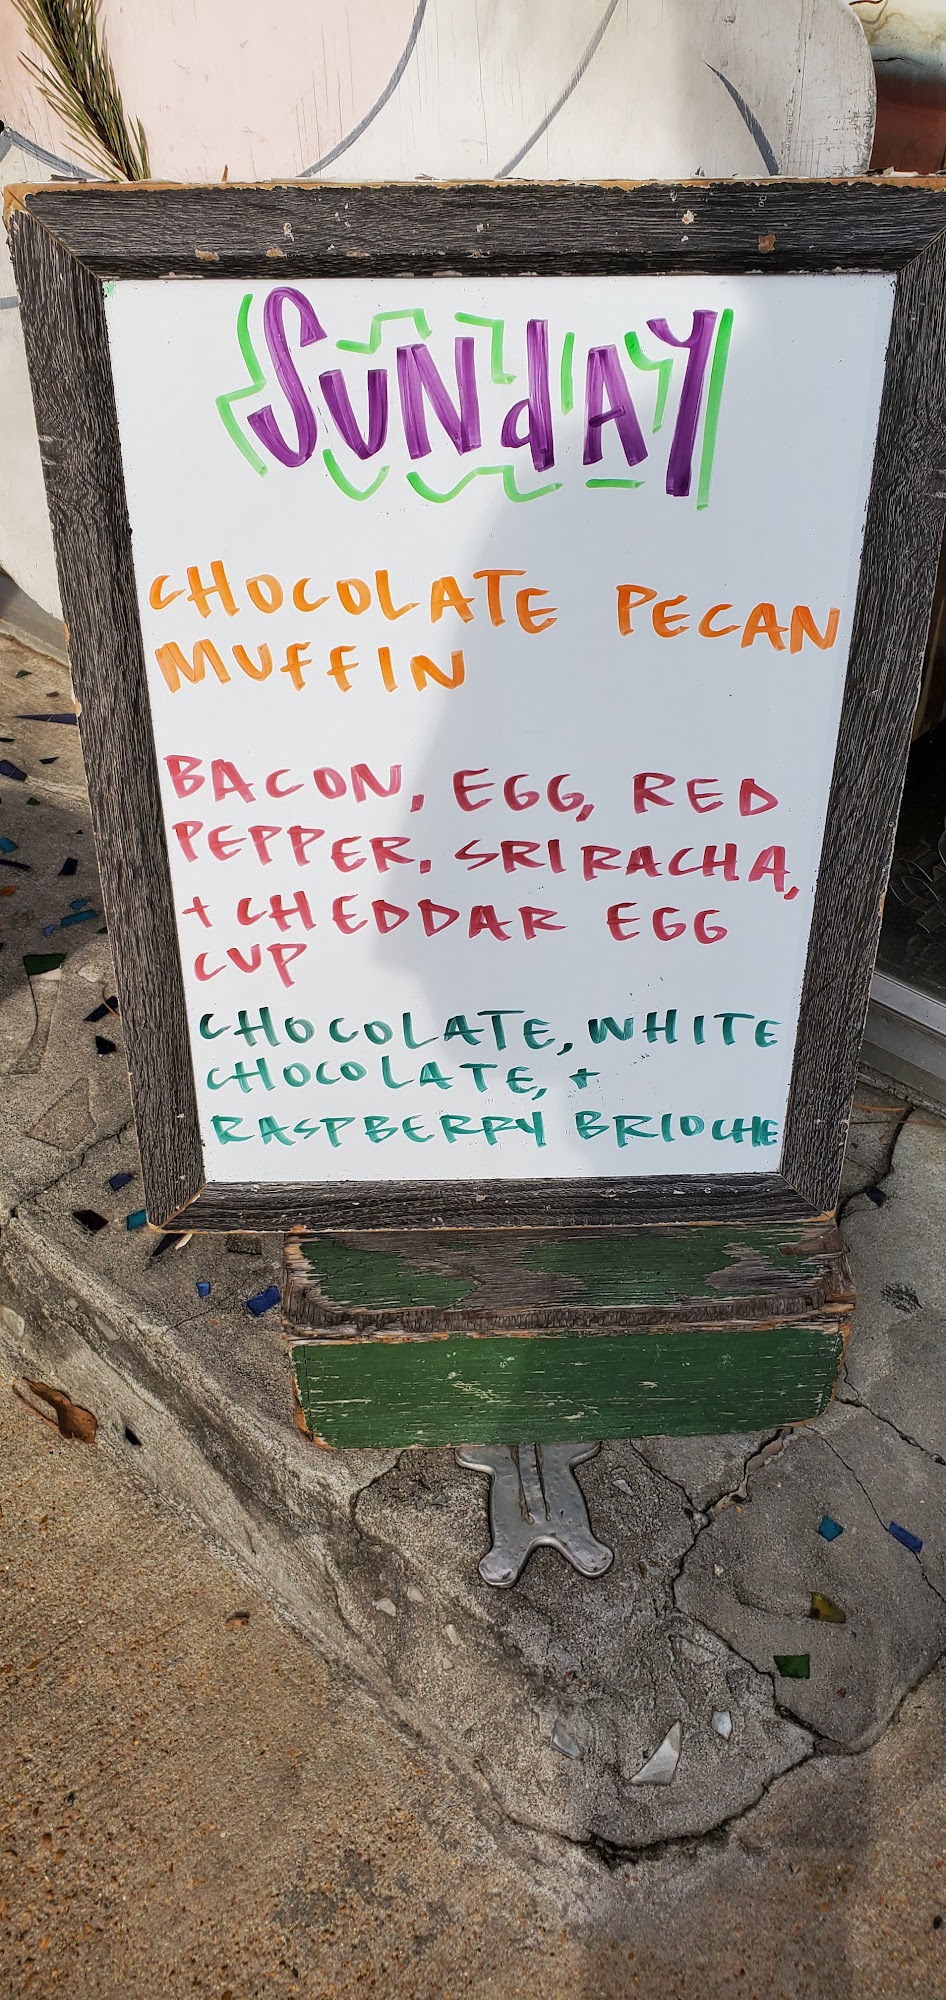 SUNdAY
CHOCOLATE PECAN
MUFFIN
BACON, EGG, RED
PEPPER, SRIRACHA,
+ CHEDDAR EGG
CUP
CHOCOLATE, WHITE
CHOCOLATE, +
RASPBERRY BRIOCHE